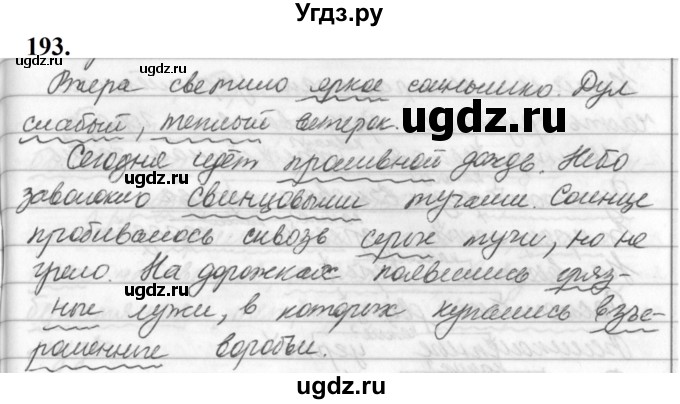 Угдз.ру
193.
Вчера светило яркое солнышко. Дул
слабый, теплый ветерок.
Сегодня идёт проливной дождь. Небо
заволокло свинцовыми тучами. Солнце
пробивалось сквозь серые тучи, но не
грело. На дорожках появились гряз-
ные лужи, в которых купались взъе-
рошенные воробьи.
ugdz.ru
ugdz.ru
ugdz.ru
ugdz.ru
ugdz.ru
ugdz.ru
ugdz.ru
ugdz.ru
ugdz.ru